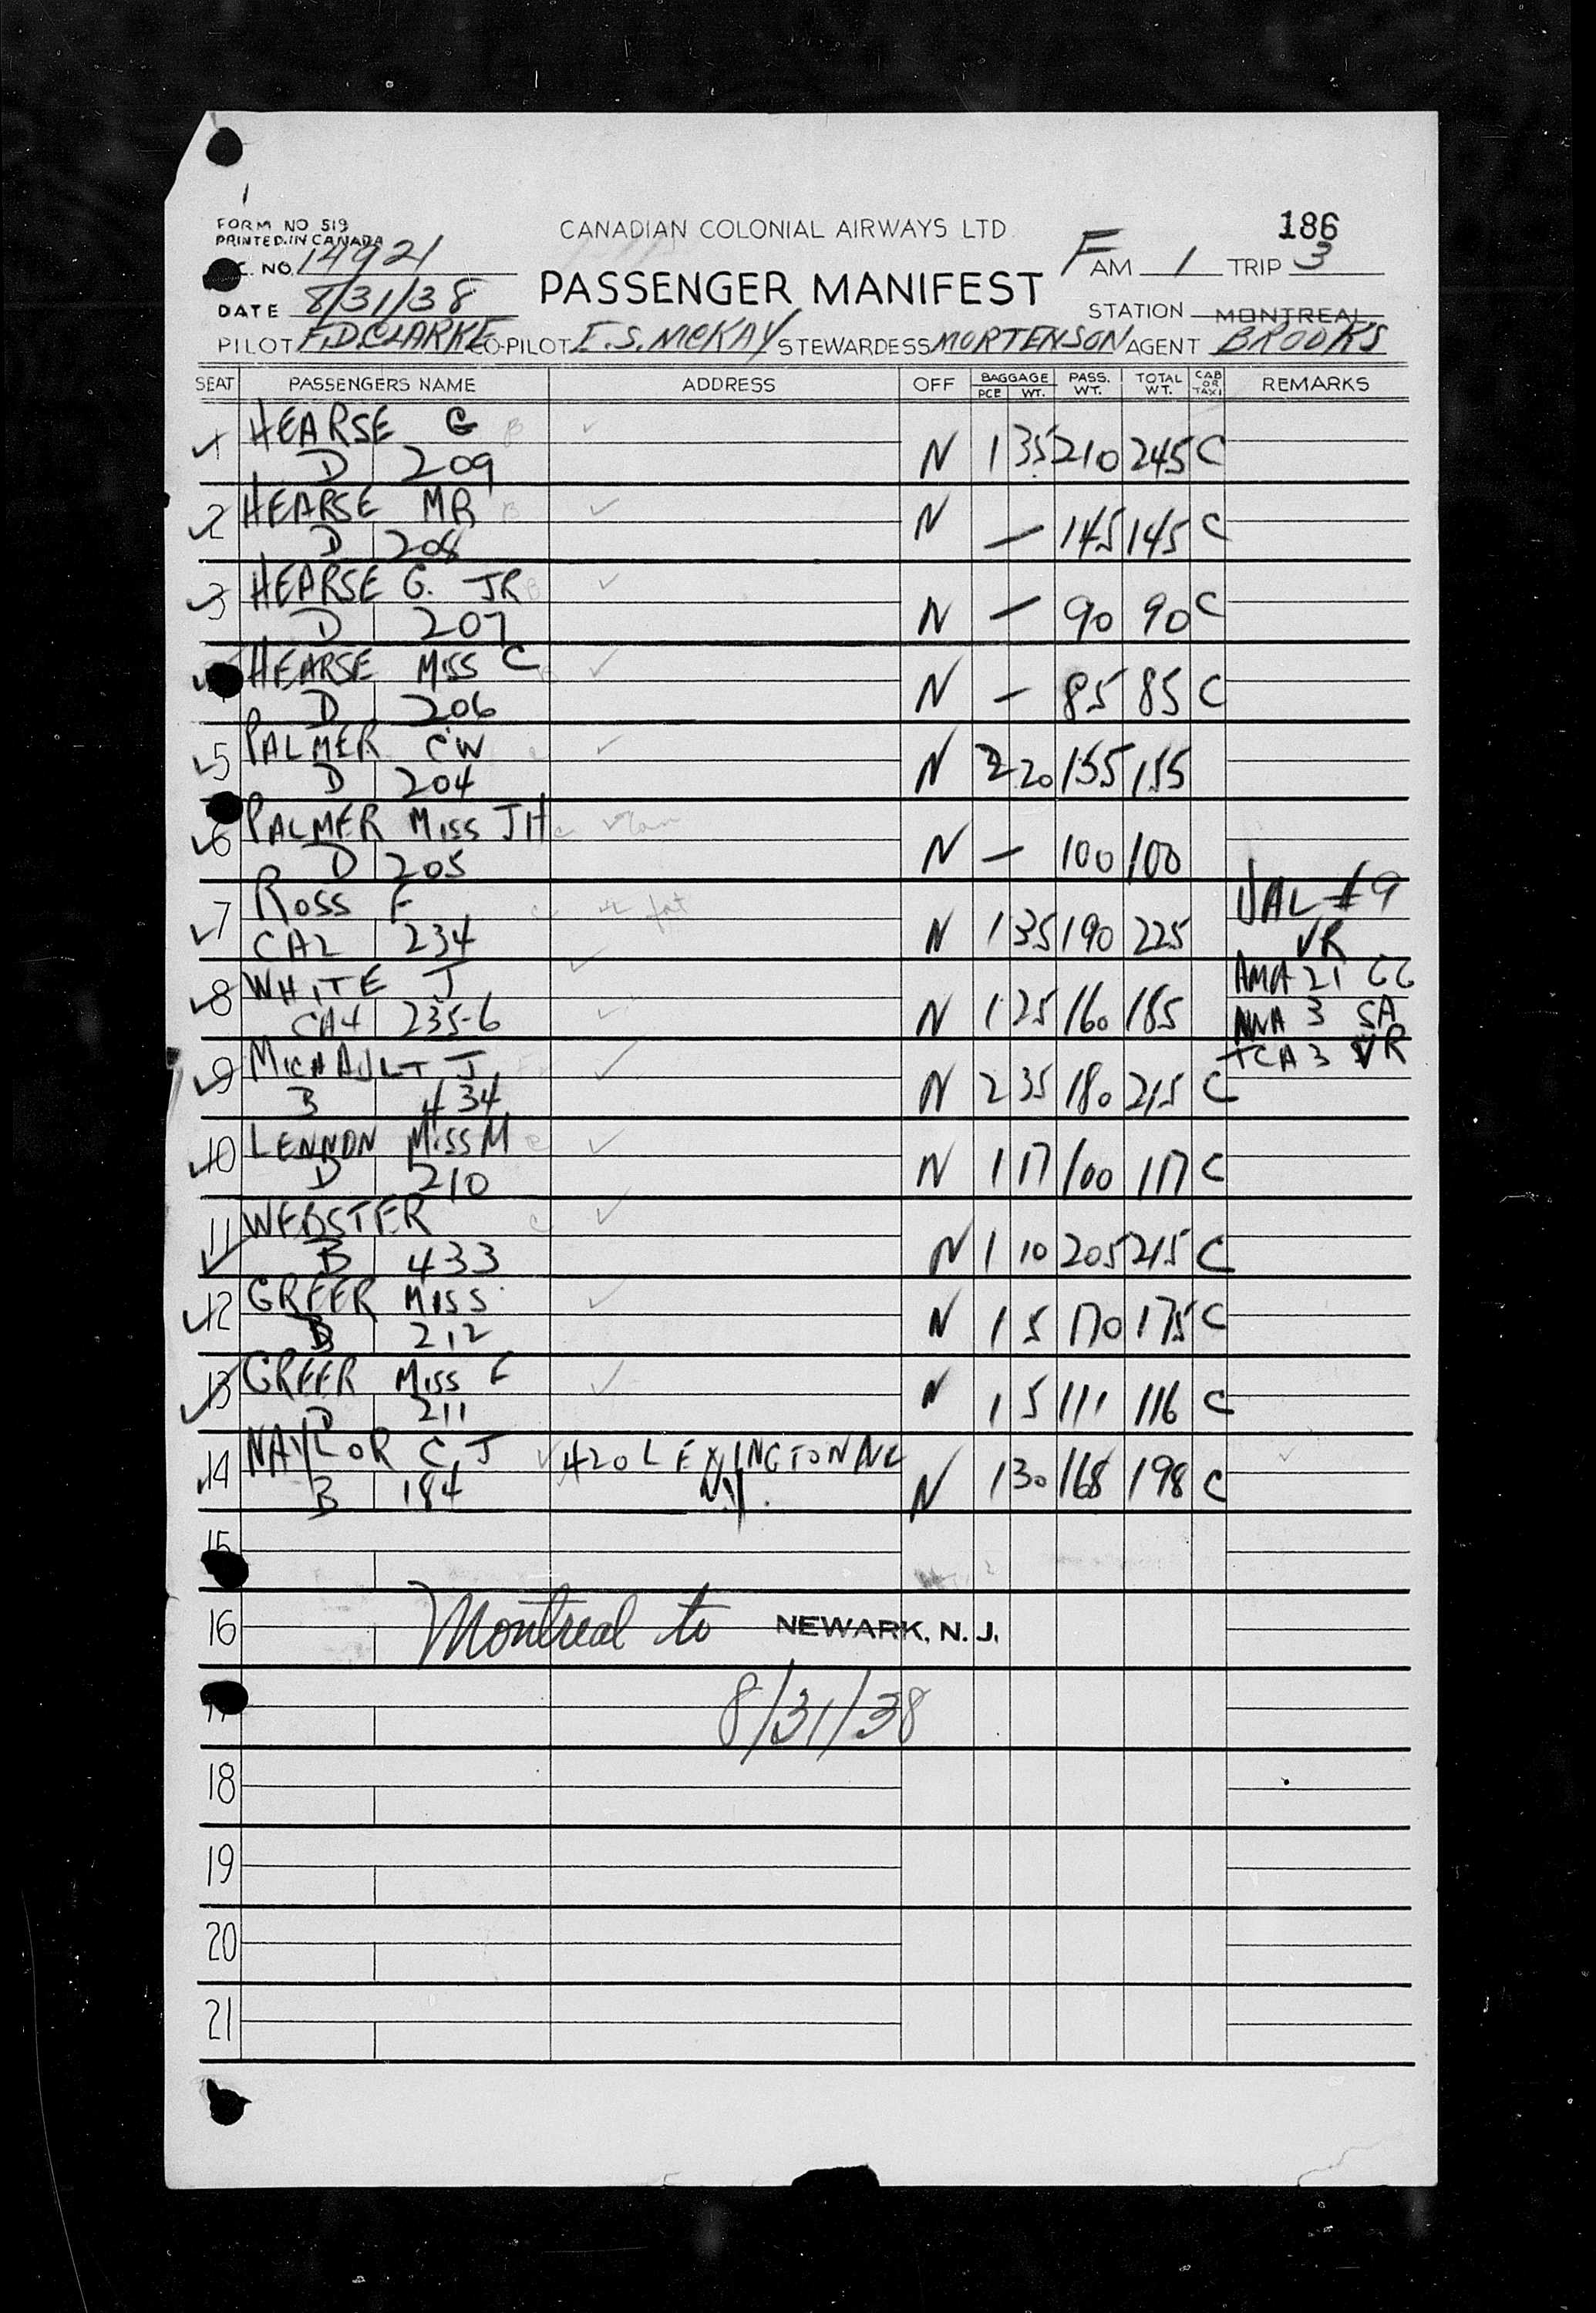 186
FORM NO 519
PRINTED.IN CANADA
CANADIAN COLONIAL AIRWAYS LTD.
C. NO. 14921
FAM 1 TRIP 3
PASSENGER MANIFEST
DATE 8/31/38
STATION MONTREAL
PILOT F.D. CLARKE CO-PILOT E.S. MCKAY STEWARDESS MORTENSON AGENT BROOKS
SEAT PASSENGERS NAME ADDRESS OFF BAGGAGE PCE WT. PASS. WT. TOTAL WT. CAB OR TAXI REMARKS
1 HEARSE G
D 209 N 1 35 210 245 C
2 HEARSE MR
D 208 N — 145 145 C
3 HEARSE G. JR
D 207 N — 90 90 C
HEARSE MISS C
D 206 N — 85 85 C
5 PALMER CW
D 204 N 2 20 155 155
6 PALMER MISS JH
D 205 N — 100 100
7 ROSS F UAL #9
CA2 234 N 1 35 190 225 VR
8 WHITE J AMA 21 CG
CA4 235-6 N 1 25 160 185 NWA 3 SA
9 MICHAULT J TCA 3 VR
B 434 N 2 35 180 215 C
10 LENNON MISS M
D 210 N 1 17 100 117 C
11 WEBSTER
B 433 N 1 10 205 215 C
12 GREER MISS
212 N 1 5 170 175 C
13 GREER MISS E
D 211 N 1 5 111 116 C
14 NAYLOR C J 420 LEXINGTON AVE
B 184 N.Y. N 1 30 168 198 C
15
16 Montreal to NEWARK, N. J.
17 8/31/38
18
19
20
21